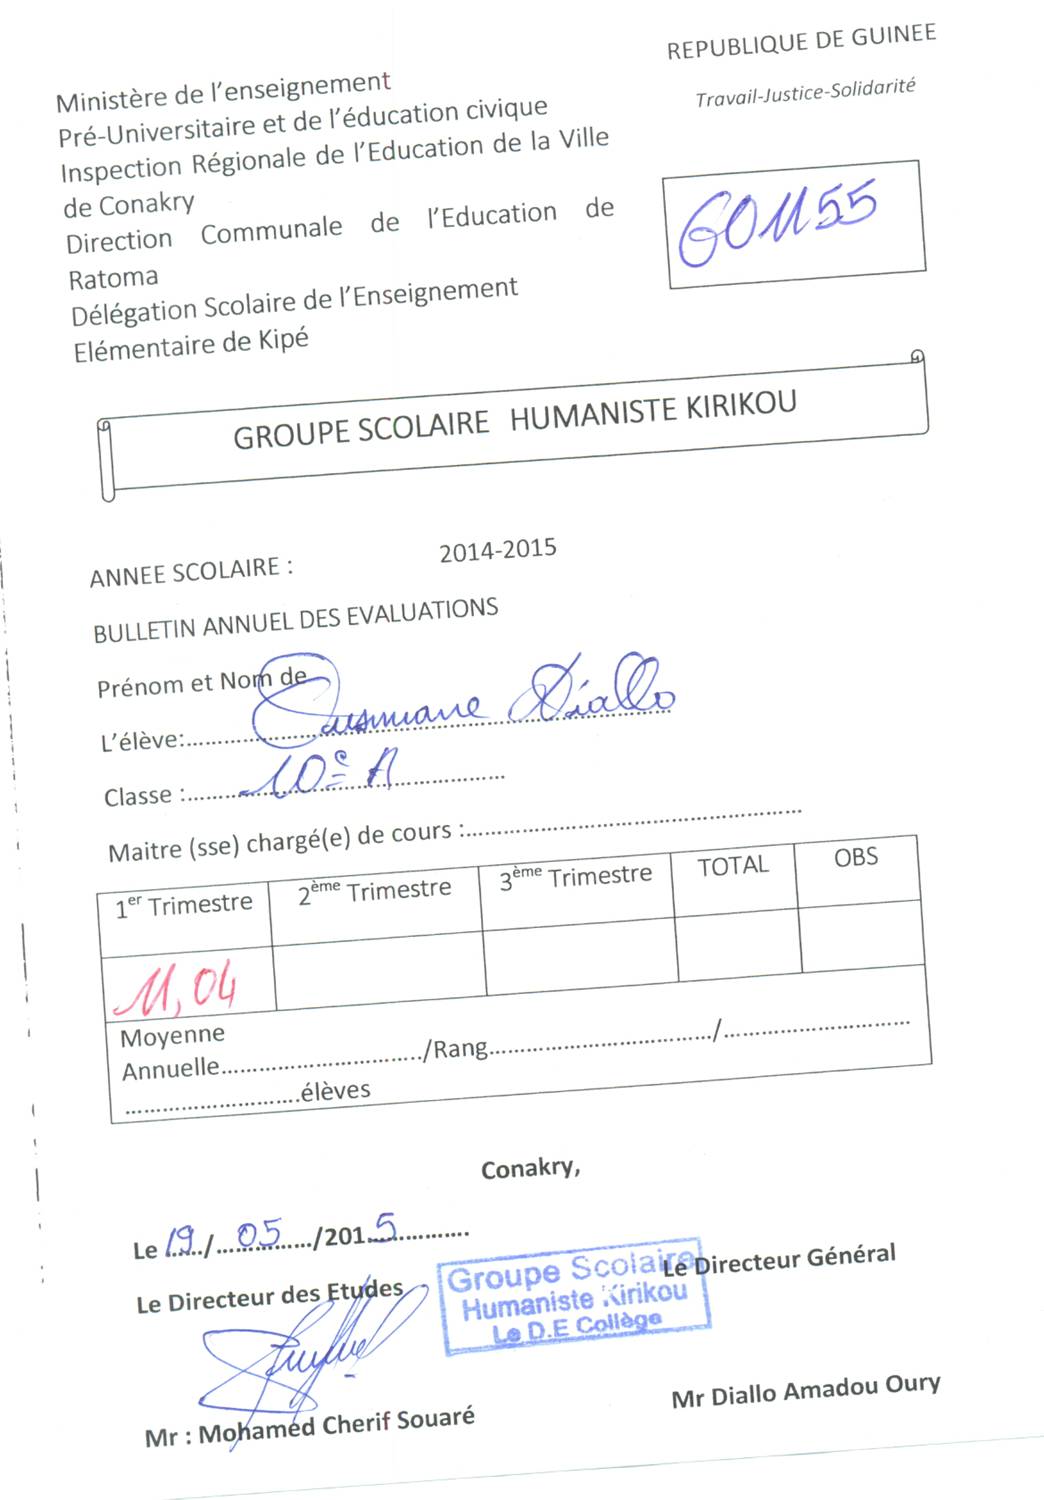 REPUBLIQUE DE GUINEE
Travail-Justice-Solidarité
Ministère de l'enseignement
Pré-Universitaire et de l'éducation civique
Inspection Régionale de l'Education de la Ville
de Conakry
Direction Communale de l'Education de
Ratoma
Délégation Scolaire de l'Enseignement
Elémentaire de Kipé
601155
GROUPE SCOLAIRE HUMANISTE KIRIKOU
ANNEE SCOLAIRE : 2014-2015
BULLETIN ANNUEL DES EVALUATIONS
Prénom et Nom de
L'élève:.......Ousmane Diallo
Classe :.......10e A.......
Maitre (sse) chargé(e) de cours :.......
1er Trimestre 2ème Trimestre 3ème Trimestre TOTAL OBS
11,04
Moyenne
Annuelle......./Rang......./.......
.......élèves
Conakry,
Le 19/05/2015
Le Directeur des Etudes Le Directeur Général
Groupe Scolaire
Humaniste Kirikou
Le D.E Collège
Mr : Mohamed Cherif Souaré Mr Diallo Amadou Oury